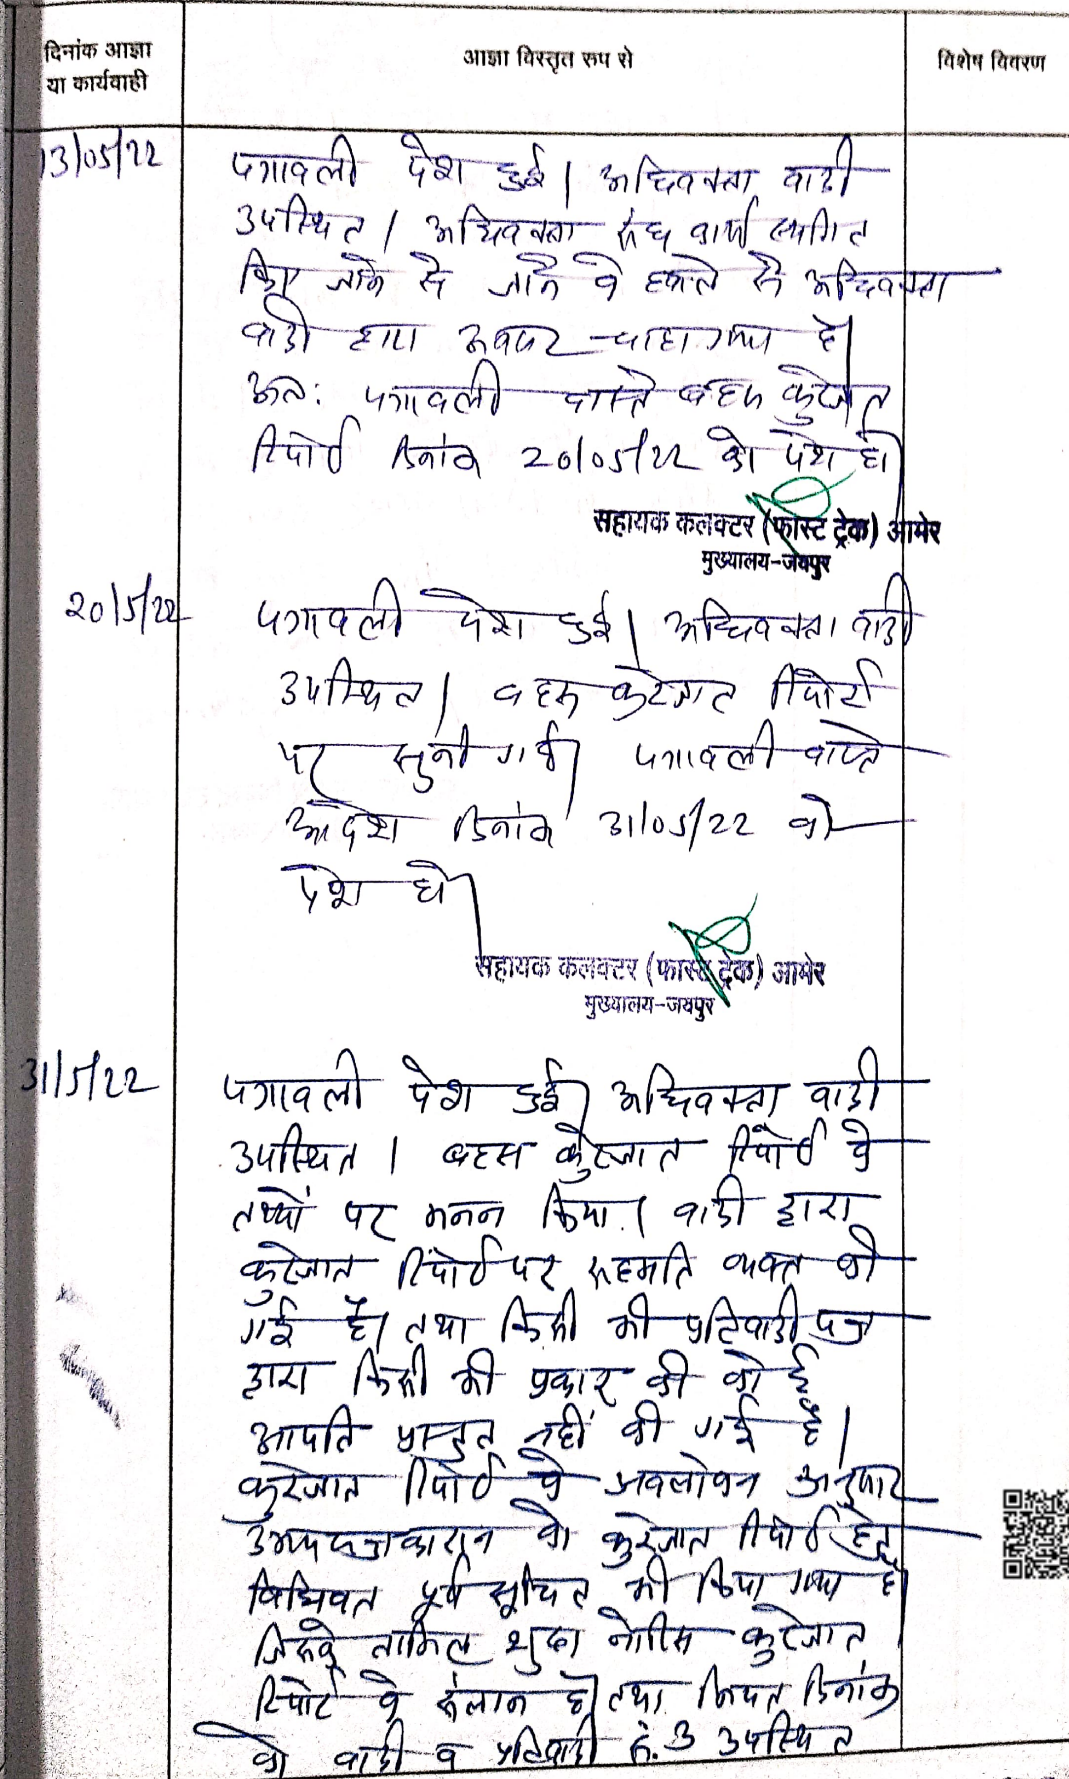 दिनांक आज्ञा
या कार्यवाही
आज्ञा विस्तृत रुप से
विशेष विवरण
13/05/22
पत्रावली पेश हुई। अधिवक्ता वादी
उपस्थित। अधिवक्ता संघ कार्य स्थगित
किए जाने से जाने के हवाले से अधिवक्ता
वादी द्वारा अवसर चाहा गया है।
अतः पत्रावली वास्ते बहस कुरेजात
रिपोर्ट दिनांक 20/05/22 को पेश हो।
सहायक कलक्टर (फास्ट ट्रेक) आमेर
मुख्यालय-जयपुर
20/5/22
पत्रावली पेश हुई। अधिवक्ता वादी
उपस्थित। बहस कुरेजात रिपोर्ट
पर सुनी गई। पत्रावली वास्ते
आदेश दिनांक 31/05/22 को
पेश हो।
सहायक कलक्टर (फास्ट ट्रेक) आमेर
मुख्यालय-जयपुर
31/5/22
पत्रावली पेश हुई। अधिवक्ता वादी
उपस्थित। बहस कुरेजात रिपोर्ट के
तथ्यों पर मनन किया। वादी द्वारा
कुरेजात रिपोर्ट पर सहमति व्यक्त की
गई है। तथा किसी भी प्रतिवादी पक्ष
द्वारा किसी भी प्रकार की कोई
आपति प्रस्तुत नहीं की गई है।
कुरेजात रिपोर्ट के अवलोकन अनुसार
उभयपक्षकारान को कुरेजात रिपोर्ट हेतु
विधिवत पूर्व सूचित भी किया गया है
जिसके तामिल शुदा नोटिस कुरेजात
रिपोर्ट के संलग्न है। तथा नियत दिनांक
को वादी व प्रतिवादी सं. 3 उपस्थित